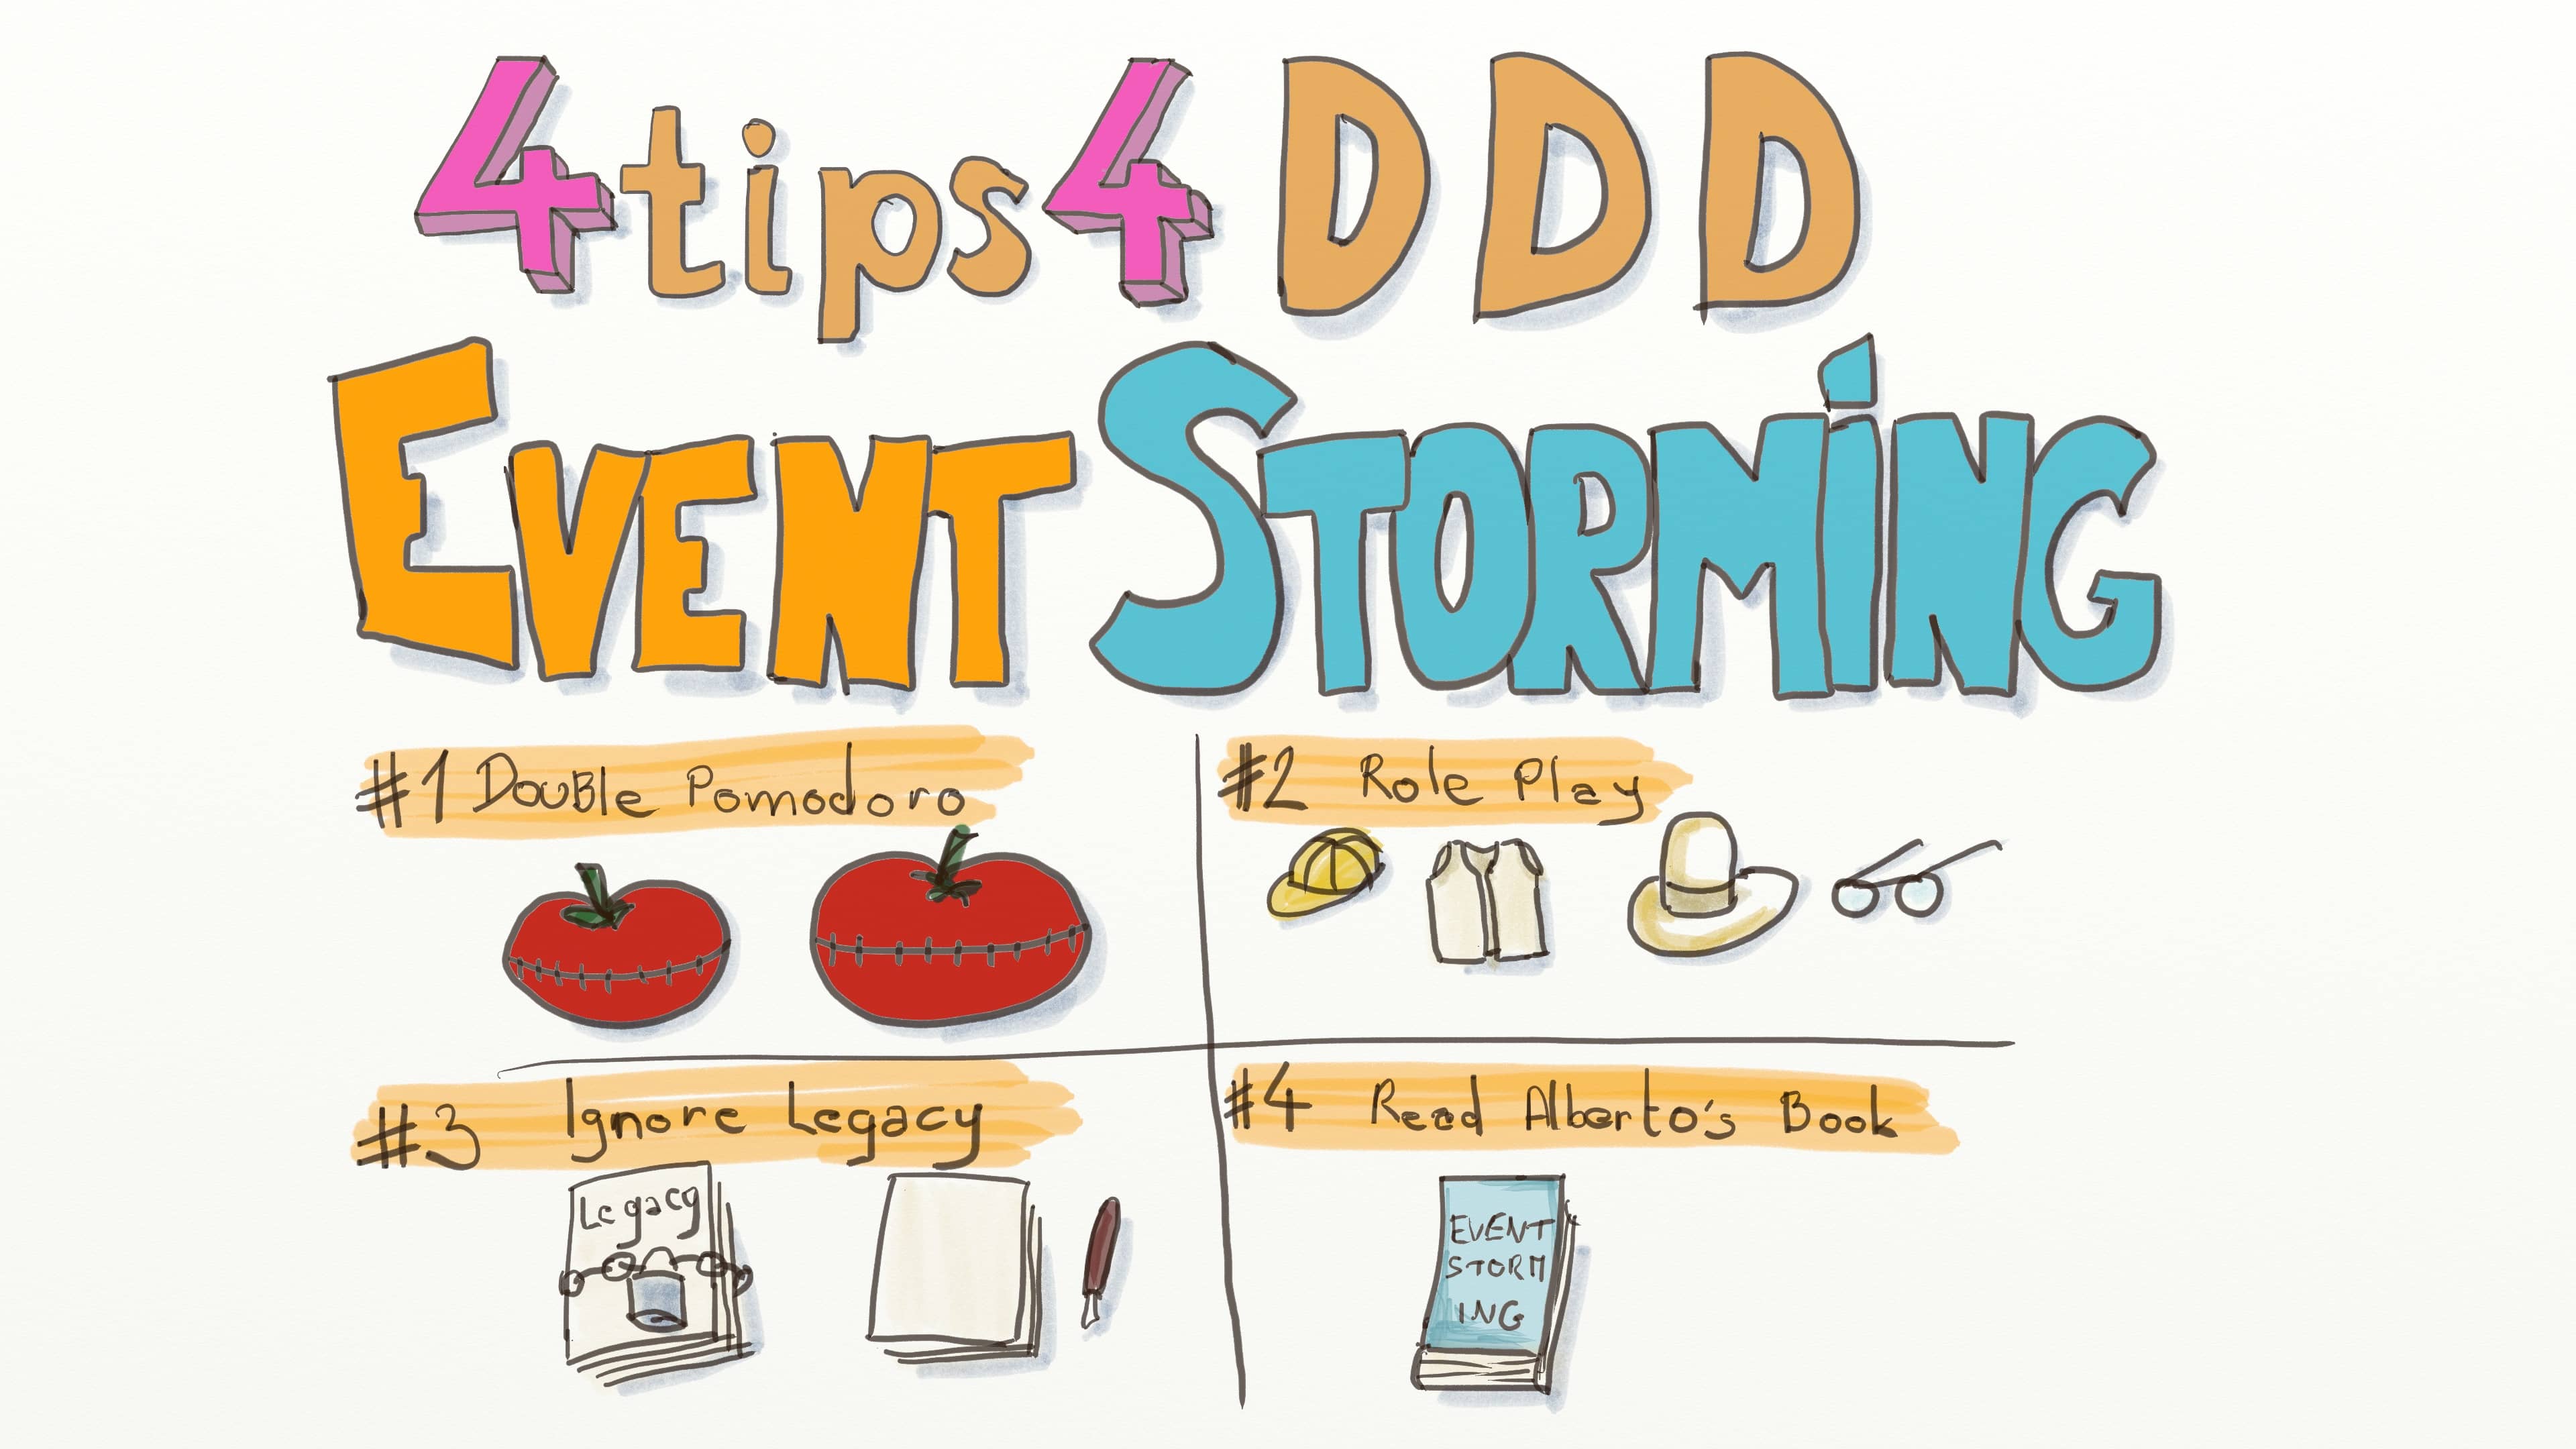 4 tips 4 DDD
EVENT STORMiNG
#1 Double Pomodoro
#2 Role Play
#3 Ignore Legacy
#4 Read Alberto's Book
Legacy
EVENT
STORM
ING